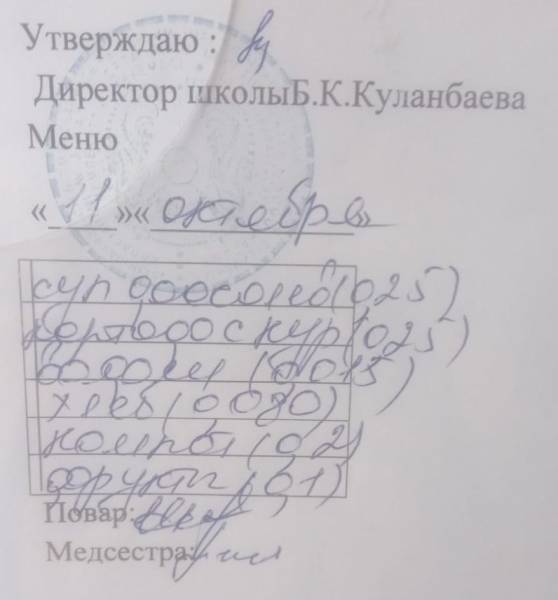 Утверждаю :
Директор школыБ.К.Куланбаева
Меню
«11»«октября»
суп (0,25)
кур (0,25)
(0,015)
хлеб (0,080)
компот (0,2)
фрукты (0,1)
Повар:
Медсестра: